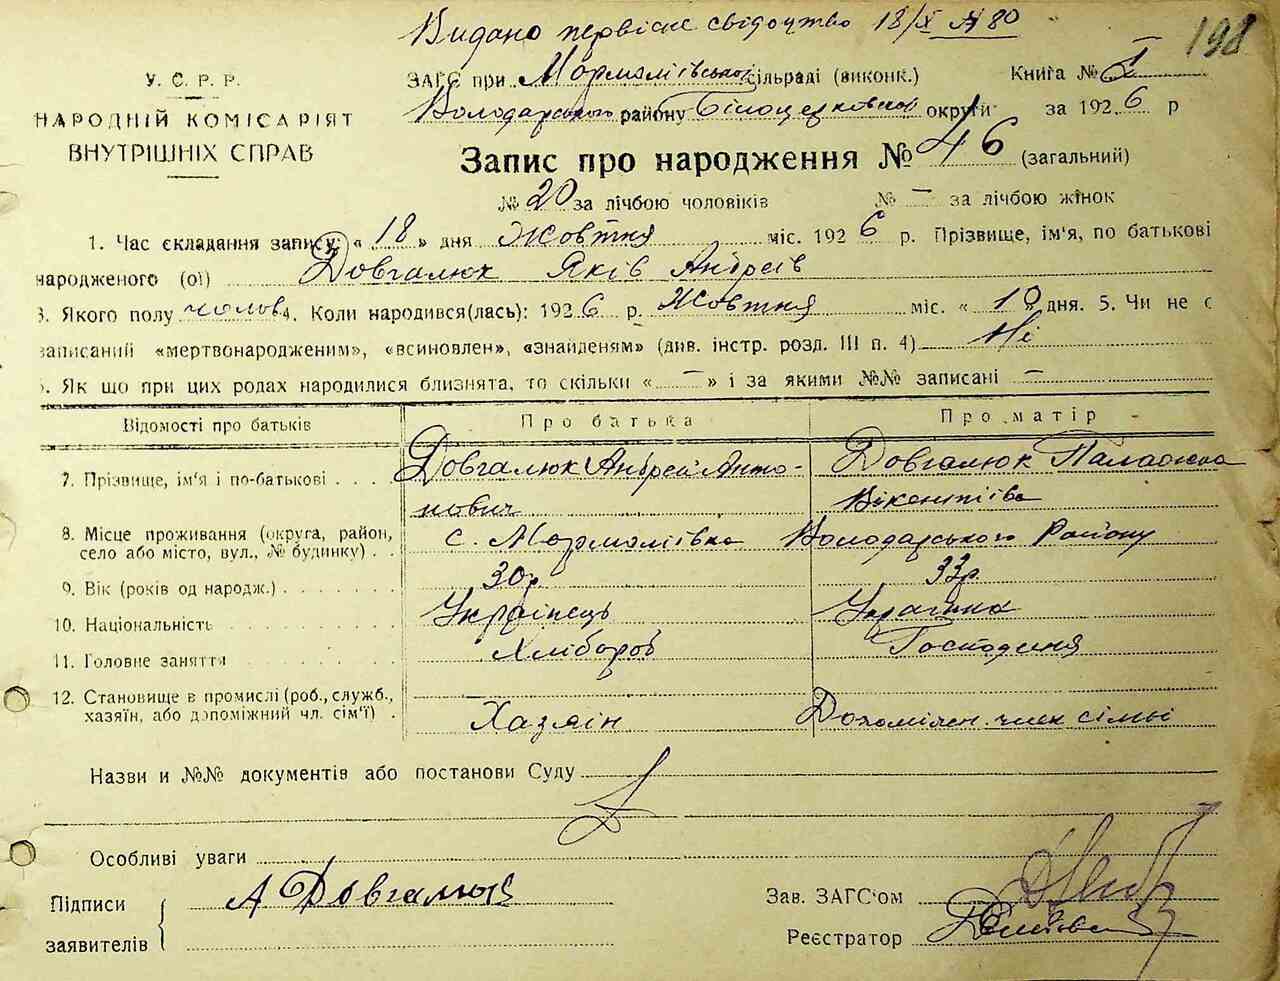 Видано первісне свідоцтво 18/X № 80
198
У. С. Р. Р.
НАРОДНІЙ КОМІСАРІЯТ
ВНУТРІШНІХ СПРАВ
ЗАГС при Мармаліївської сільраді (виконк.) Книга № I
Володарського району Білоцерковської округи за 1926 р
Запис про народження № 46 (загальний)
№ 20 за лічбою чоловіків № — за лічбою жінок
1. Час складання запису: « 18 » дня Жовтня міс. 1926 р. Прізвище, ім'я, по батькові
народженого (ої) Довгалюк Яків Андреїв
3. Якого полу чолов 4. Коли народився(лась): 1926 р. Жовтня міс. « 10 дня. 5. Чи не є
записаний «мертвонародженим», «всиновлен», «знайденям» (див. інстр. розд. III п. 4) Ні
. Як що при цих родах народилися близнята, то скільки « — » і за якими №№ записані —
Відомості про батьків Про батька Про матір
7. Прізвище, ім'я і по-батькові . . . . Довгалюк Андрей Анто- Довгалюк Палажка
нович Вікентіїва
8. Місце проживання (округа, район,
село або місто, вул., № будинку) . . с. Мармаліївка Володарського Району
9. Вік (років од народж.) . . . . . . . 30р. 33р.
10. Національність . . . . . . . . . . Українець Українка
11. Головне заняття . . . . . . . . . Хлібороб Господиня
12. Становище в промислі (роб., служб.,
хазяїн, або допоміжний чл. сім'ї) . Хазяін Допоміжн. член сімьї
Назви и №№ документів або постанови Суду
Особливі уваги
Підписи
заявителів
А Довгалюк
Зав. ЗАГС'ом
Реєстратор